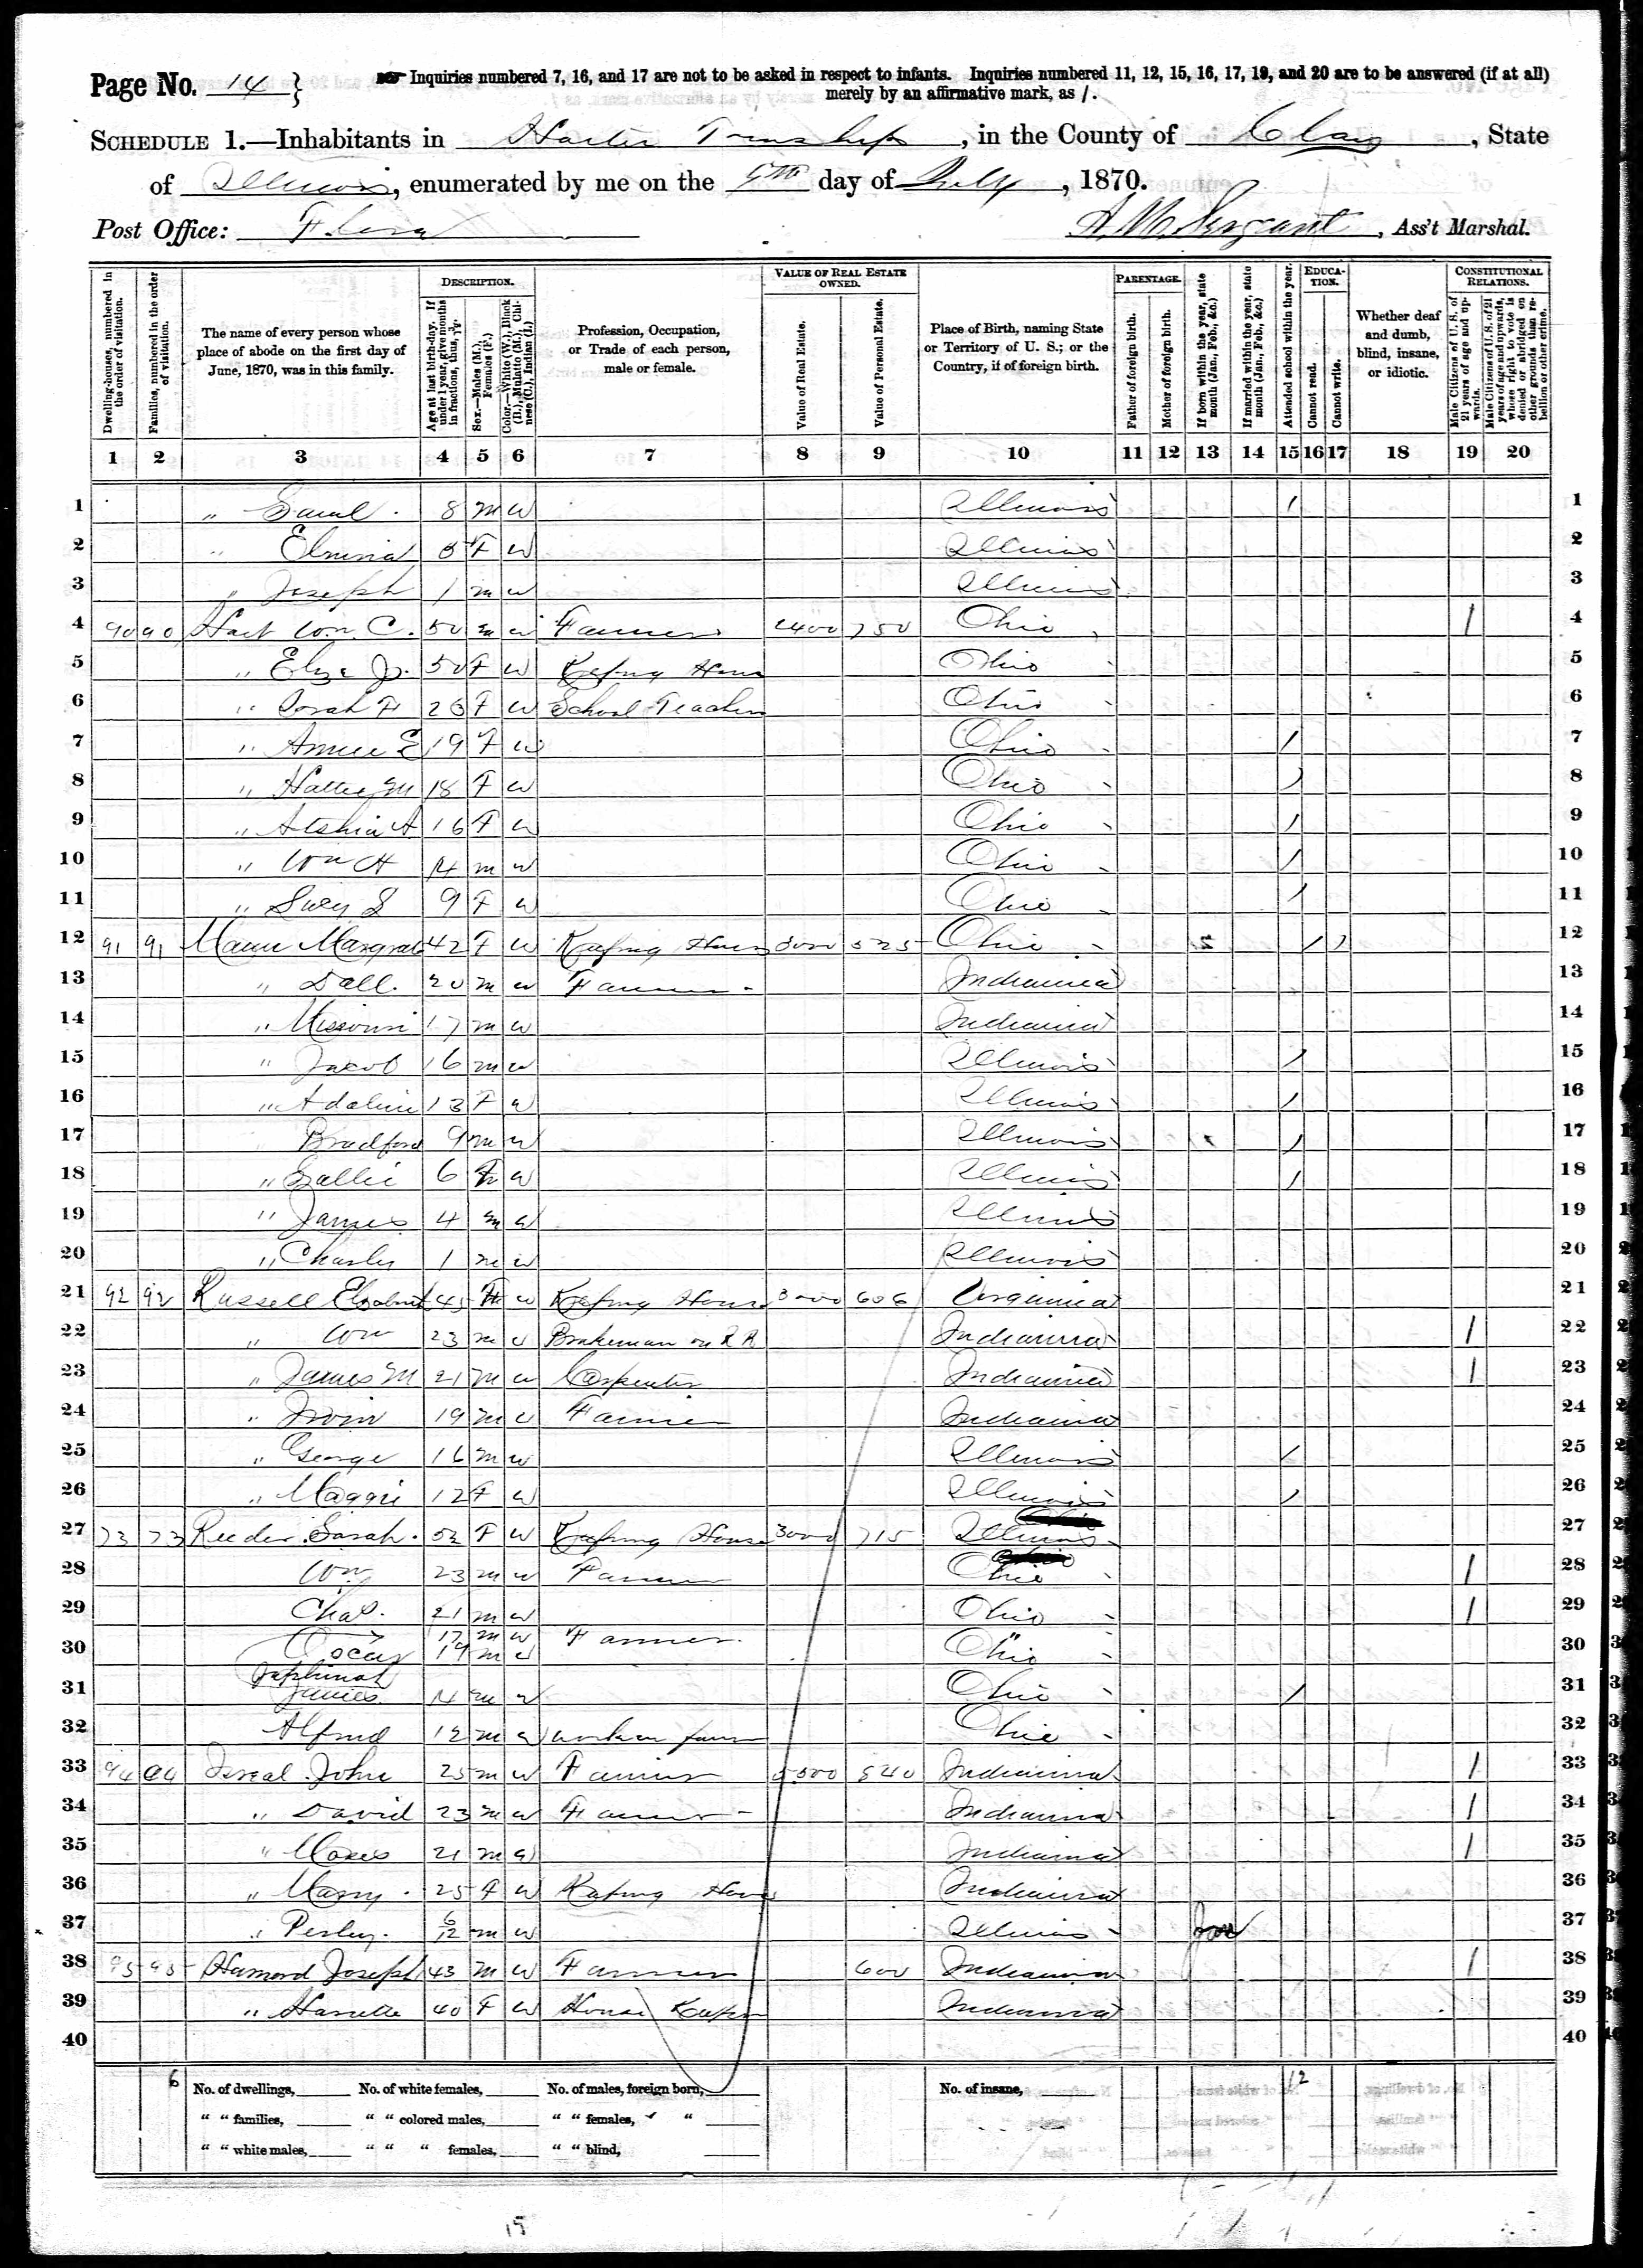 Page No. 14 } Inquiries numbered 7, 16, and 17 are not to be asked in respect to infants. Inquiries numbered 11, 12, 15, 16, 17, 19, and 20 are to be answered (if at all)
merely by an affirmative mark, as /.
SCHEDULE 1.—Inhabitants in Harter Township, in the County of Clay, State
of Illinois, enumerated by me on the 5th day of July, 1870.
Post Office: Flora
Ass't Marshal.
Dwelling-houses, numbered in the order of visitation.
Families, numbered in the order of visitation.
The name of every person whose place of abode on the first day of June, 1870, was in this family.
DESCRIPTION.
Age at last birth-day. If under 1 year, give months in fractions, thus, 3/12.
Sex.—Males (M.), Females (F.)
Color.—White (W.), Black (B.), Mulatto (M.), Chinese (C.), Indian (I.)
Profession, Occupation, or Trade of each person, male or female.
VALUE OF REAL ESTATE OWNED.
Value of Real Estate.
Value of Personal Estate.
Place of Birth, naming State or Territory of U. S.; or the Country, if of foreign birth.
PARENTAGE.
Father of foreign birth.
Mother of foreign birth.
If born within the year, state month (Jan., Feb., &c.)
If married within the year, state month (Jan., Feb., &c.)
Attended school within the year.
EDUCATION.
Cannot read.
Cannot write.
Whether deaf and dumb, blind, insane, or idiotic.
CONSTITUTIONAL RELATIONS.
Male Citizens of U. S. of 21 years of age and upwards.
Male Citizens of U. S. of 21 years of age and upwards, whose right to vote is denied or abridged on other grounds than rebellion or other crime.
1 2 3 4 5 6 7 8 9 10 11 12 13 14 15 16 17 18 19 20
1 " Saml. 8 M W Illinois / 1
2 " Elmina 5 F W Illinois 2
3 " Joseph 1 M W Illinois 3
4 90 90 Hart Wm. C. 50 M W Farmer 2400 750 Ohio / 4
5 " Eliza J. 50 F W Keeping House Ohio 5
6 " Sarah F 23 F W School Teacher Ohio 6
7 " Annie E 19 F W Ohio / 7
8 " Hattie M 18 F W Ohio / 8
9 " 16 F W Ohio / 9
10 " Wm H 14 M W Ohio / 10
11 " Lucy S 9 F W Ohio / 11
12 91 91 Mann Margrat 42 F W Keeping House 3000 525 Ohio / / 12
13 " Dall. 20 M W Farmer Indianna 13
14 " Missouri 17 M W Indianna 14
15 " Jacob 16 M W Illinois / 15
16 " Adaline 13 F W Illinois / 16
17 Bradford 9 M W Illinois / 17
18 " Sallie 6 F W Illinois / 18
19 " James 4 M W Illinois 19
20 " Charley 1 M W Illinois 20
21 92 92 Russell Elizabeth 45 F W Keeping House 3000 606 Virginnia 21
22 " Wm 23 M W Brakeman on R R Indianna / 22
23 " James M 21 M W Carpenter Indianna / 23
24 " Irvin 19 M W Farmer Indianna 24
25 " George 16 M W Illinois / 25
26 " Maggie 12 F W Illinois / 26
27 73 73 Reeder Sarah. 52 F W Keeping House 3000 715 Illinois 27
28 Wm 23 M W Farmer Ohio / 28
29 Chas. 21 M W Ohio / 29
30 Oscar 17 M W 19 M W Farmer Ohio " 30
31 James 14 M W Ohio / 31
32 Alfred 12 M W work on farm Ohio 32
33 94 94 Isreal John 25 M W Farmer 5500 840 Indianna / 33
34 " David 23 M W Farmer Indianna / 34
35 " Moses 21 M W Indianna / 35
36 " Mary 25 F W Keeping House Indianna 36
37 " Perley 6/12 M W Illinois Jan 37
38 95 95 Hamond Joseph 43 M W Farmer 600 Indianna / 38
39 " Harrette 40 F W House Keeper Indianna 39
40 40
6 No. of dwellings, No. of white females, No. of males, foreign born, No. of insane, 12
" " families, " " colored males, " " females, "
" " white males, " " " females, " " blind,
15